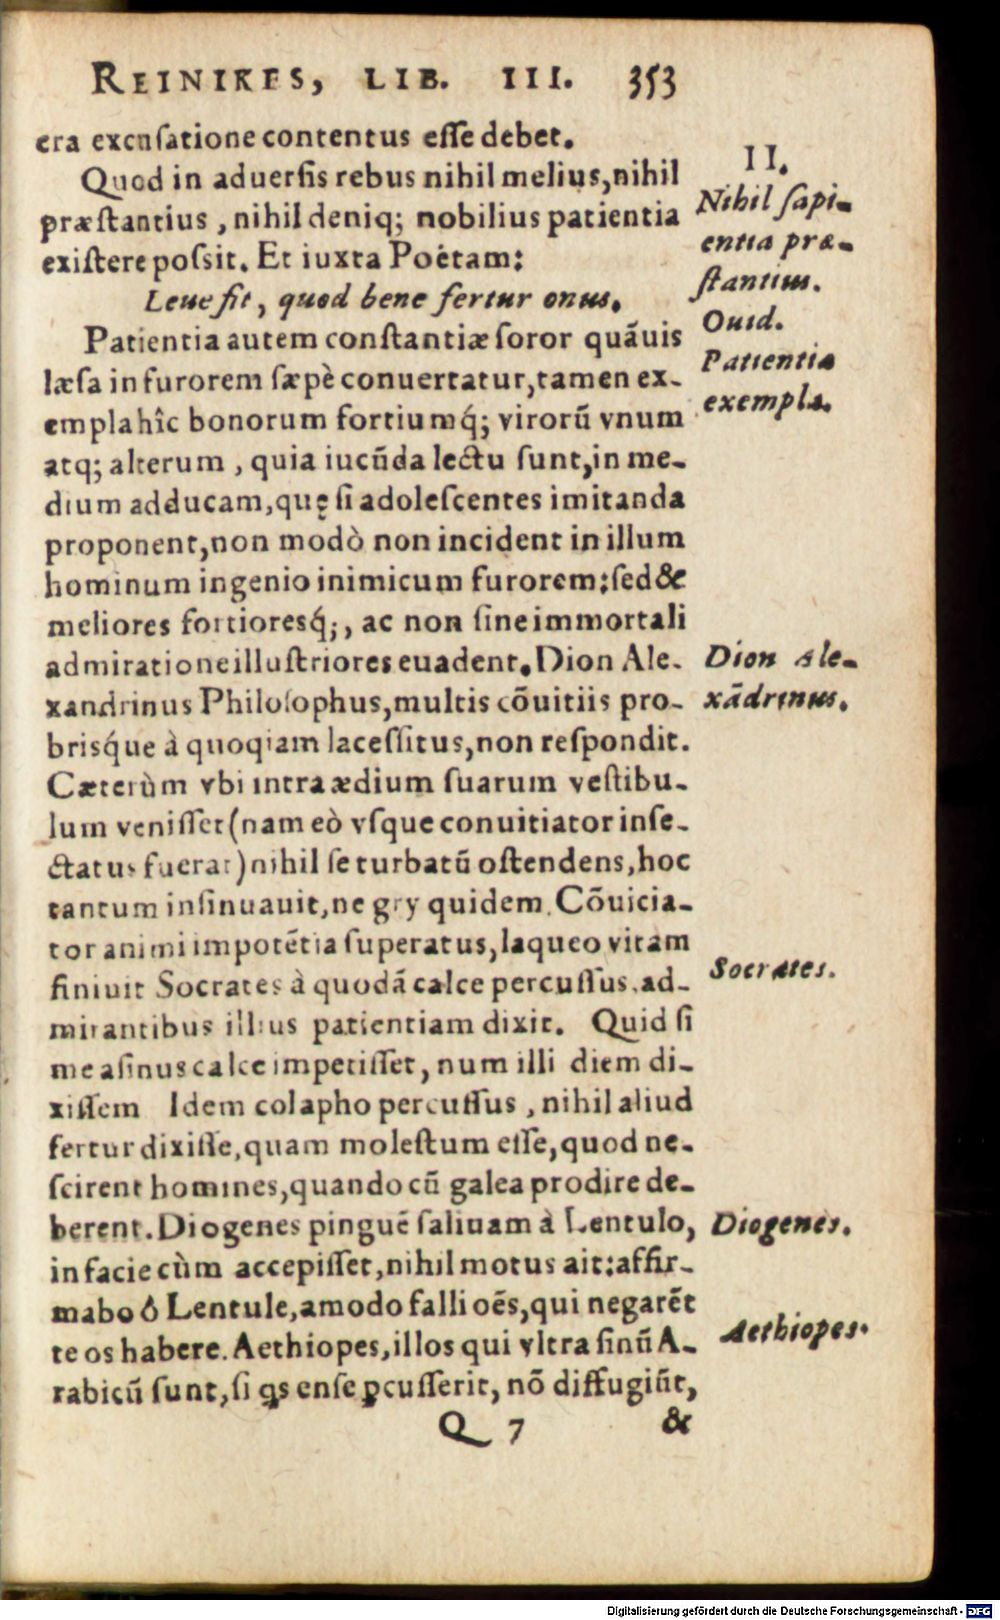 REINIKES, LIB. III. 353
era excusatione contentus esse debet.
Quod in aduersis rebus nihil melius, nihil
præstantius, nihil deniq; nobilius patientia
existere possit. Et iuxta Poëtam:
Leue fit, quod bene fertur onus.
Patientia autem constantiæ soror quãuis
læsa in furorem sæpè conuertatur, tamen ex-
empla hîc bonorum fortiumq́; virorũ vnum
atq; alterum, quia iucũda lectu sunt, in me-
dium adducam, quę si adolescentes imitanda
proponent, non modò non incident in illum
hominum ingenio inimicum furorem: sed &
meliores fortioresq́;, ac non sine immortali
admiratione illustriores euadent. Dion Ale-
xandrinus Philosophus, multis cõuitiis pro-
brisq́ue à quoqiam lacessitus, non respondit.
Cæterùm vbi intra ædium suarum vestibu-
lum venisset (nam eò vsque conuitiator inse-
ctatus fuerat) nihil se turbatũ ostendens, hoc
tantum insinuauit, ne gry quidem. Cõuicia-
tor animi impotẽtia superatus, laqueo vitam
finiuit Socrates à quodã calce percussus, ad-
mirantibus illius patientiam dixit. Quid si
me asinus calce impetisset, num illi diem di-
xissem Idem colapho percussus, nihil aliud
fertur dixisse, quam molestum esse, quod ne-
scirent homines, quando cũ galea prodire de-
berent. Diogenes pinguẽ saliuam à Lentulo,
in facie cùm accepisset, nihil motus ait: affir-
mabo ô Lentule, amodo falli oẽs, qui negarẽt
te os habere. Aethiopes, illos qui vltra sinũ A-
rabicũ sunt, si qs ense ꝑcusserit, nõ diffugiũt,
Q 7 &
II.
Nihil sapi-
entia præ-
stantius.
Ouid.
Patientiæ
exempla.
Dion Ale-
xãdrinus.
Socrates.
Diogenes.
Aethiopes.
Digitalisierung gefördert durch die Deutsche Forschungsgemeinschaft - DFG